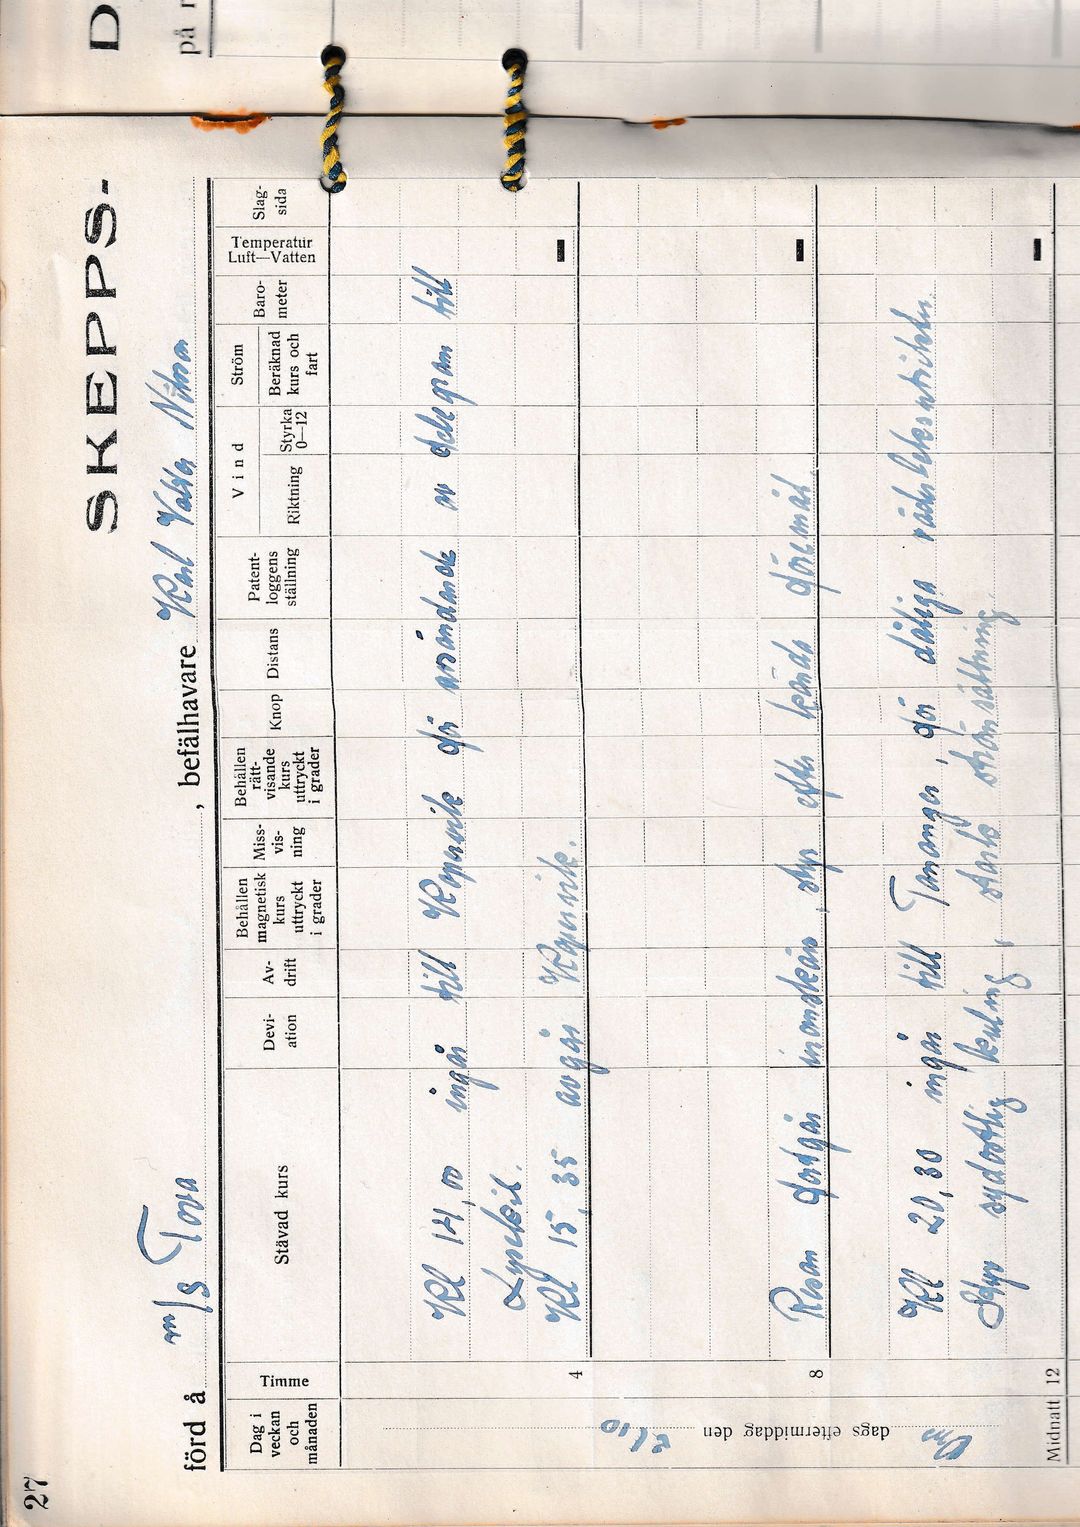 27
SKEPPS-
förd å m/s Tova, befälhavare Karl Valter Nilsson
Dag i veckan och månaden
Timme
Stävad kurs
Devi-ation
Av-drift
Behållen magnetisk kurs uttryckt i grader
Miss-vis-ning
Behållen rätt-visande kurs uttryckt i grader
Knop
Distans
Patent-loggens ställning
Vind
Riktning
Styrka 0—12
Ström
Beräknad kurs och fart
Baro-meter
Temperatur Luft—Vatten
Slag-sida
Kl 14,00 ingår till Kopervik för avsändande av telegram till
Lysekil.
Kl 15,35 avgår Kopervik.
4
Resan fortgår inomskärs, styr efter kända föremål.
8
Kl 20,30 ingår till Tananger, för dåliga väderleksutsikter.
Styv sydostlig kuling, stark strömsättning.
Midnatt 12
dags eftermiddag den
D
på r